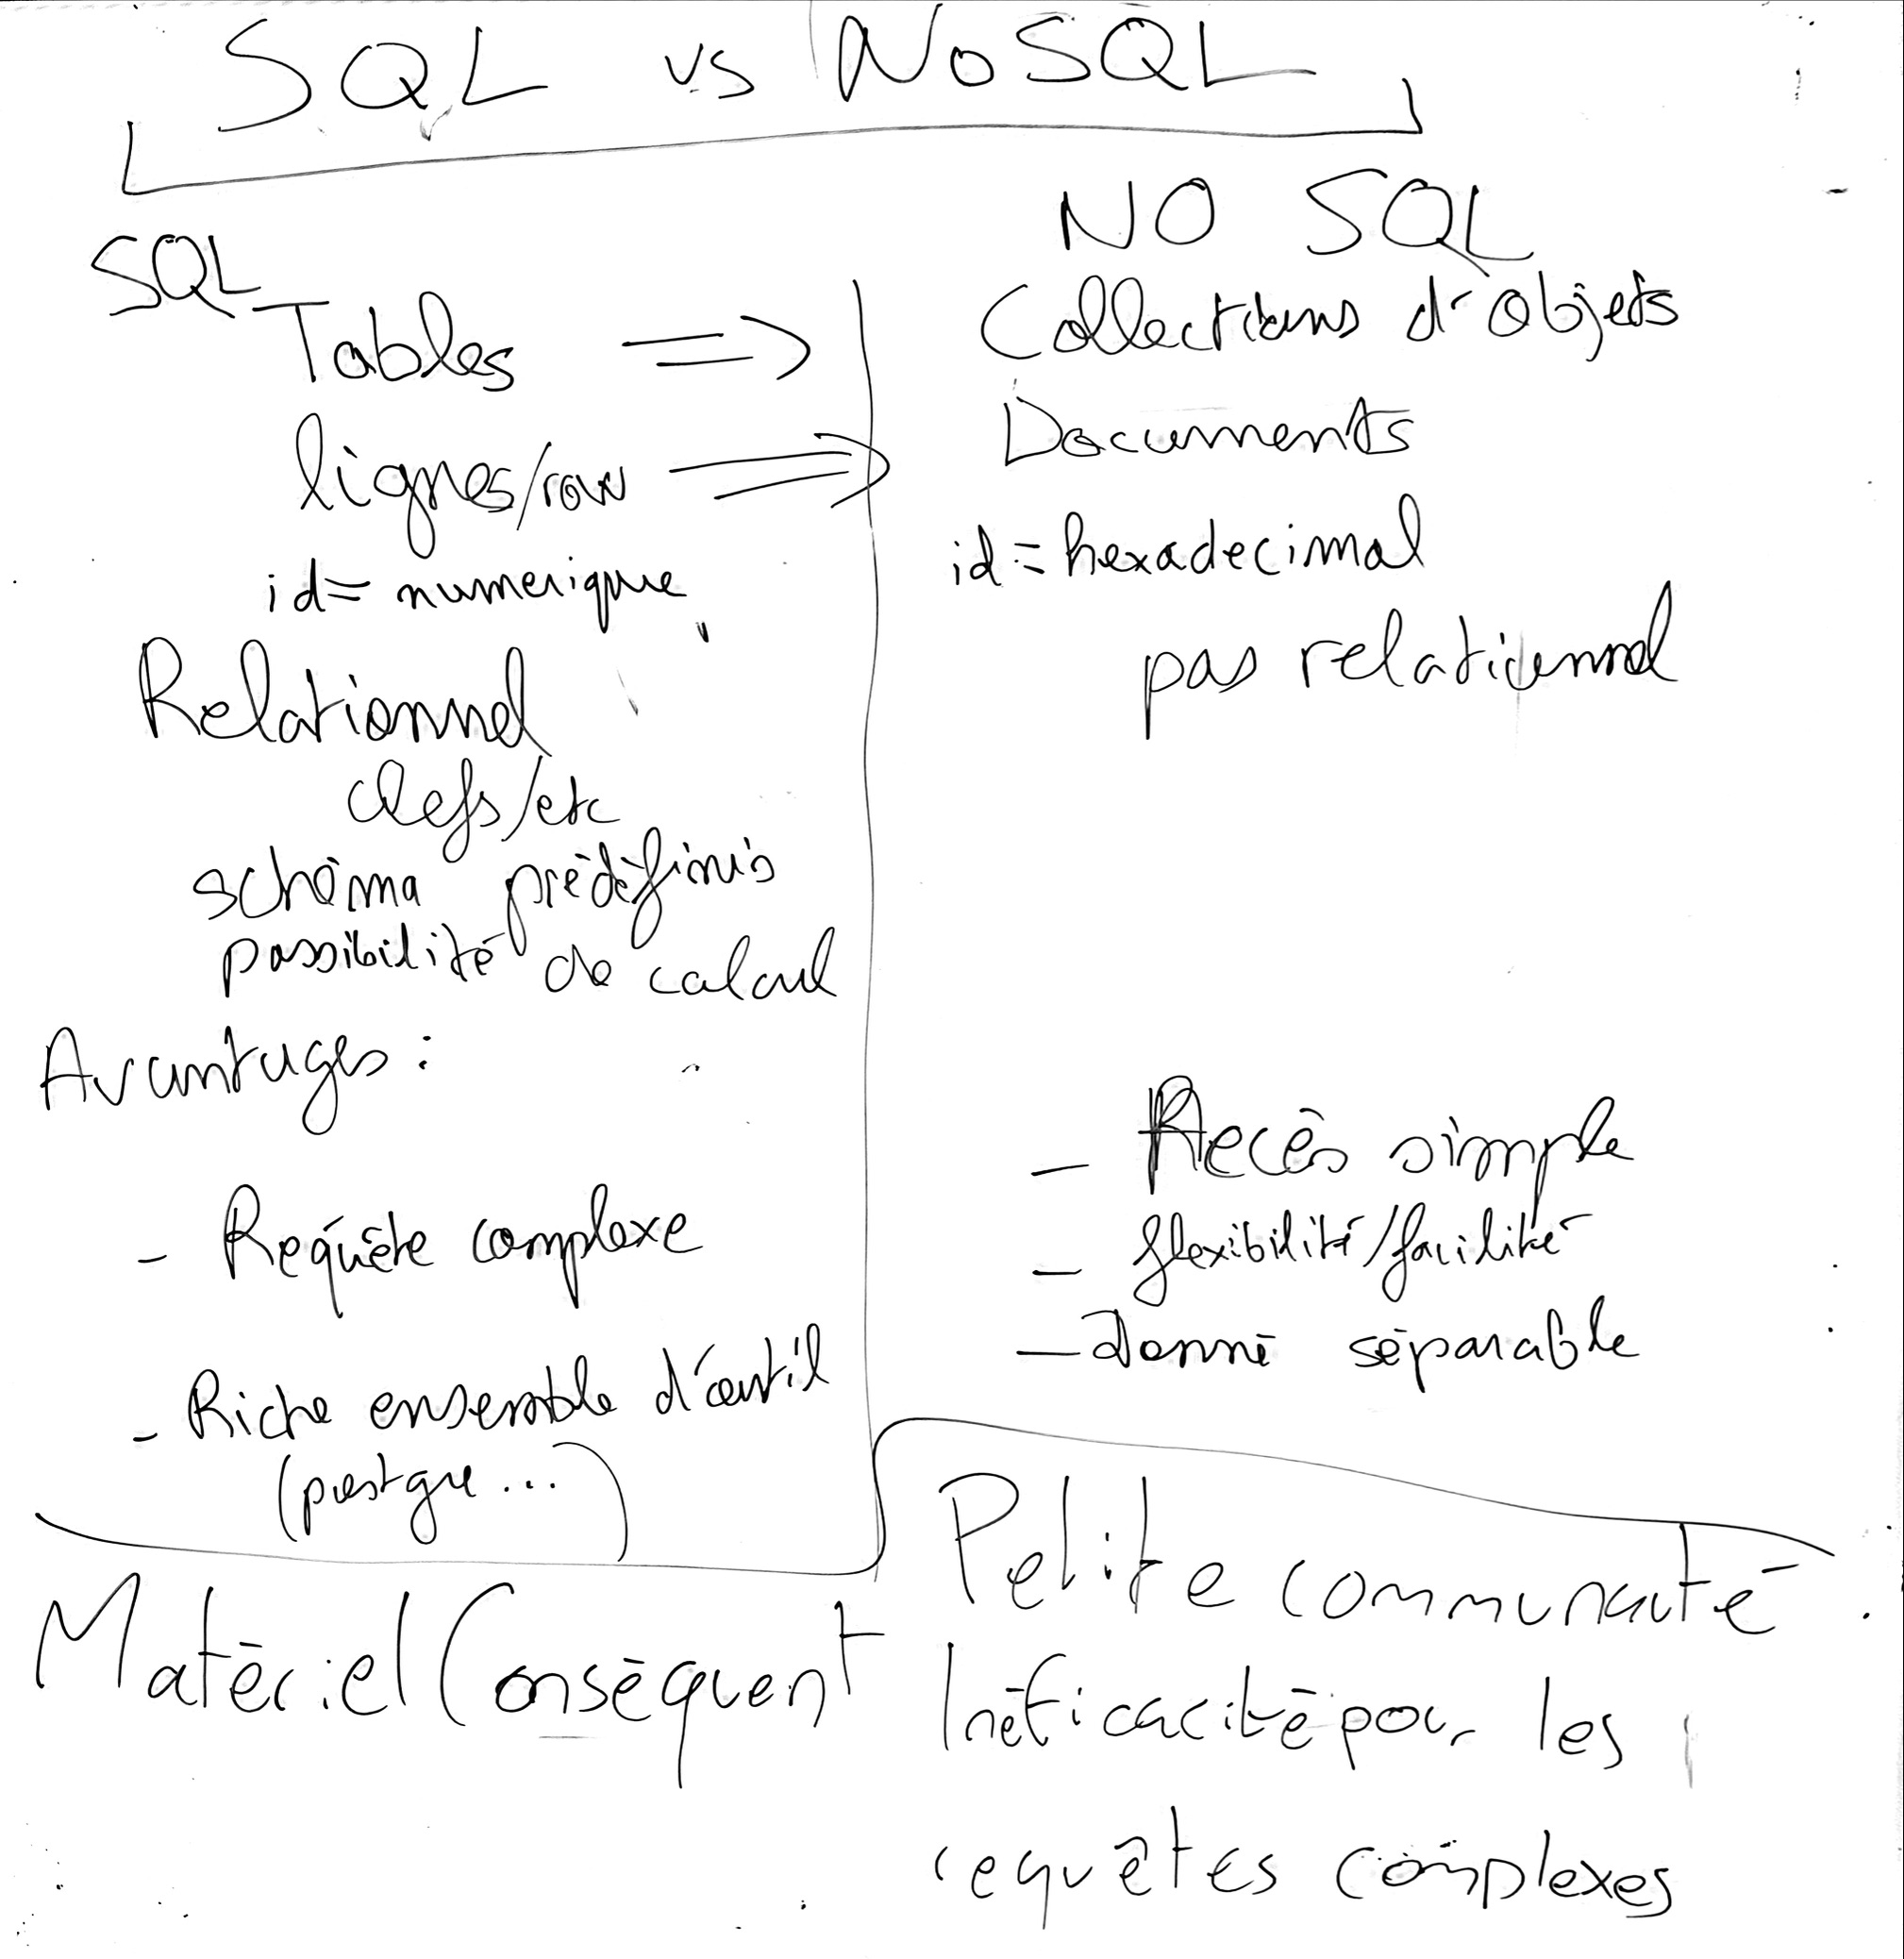 SQL vs NoSQL
SQL
Tables =>
lignes/row =>
id = numerique
Relationnel
clefs/etc
schéma prédéfinis
possibilité de calcul
Avantages :
- Requête complexe
- Riche ensemble d'outil
(postgre...)
Matériel Conséquent
NO SQL
Collections d'objets
Documents
id = hexadecimal
pas relationnel
- Accès simple
- flexibilité/facilité
- Donné séparable
Petite communauté
Inéficacité pour les
requêtes complexes